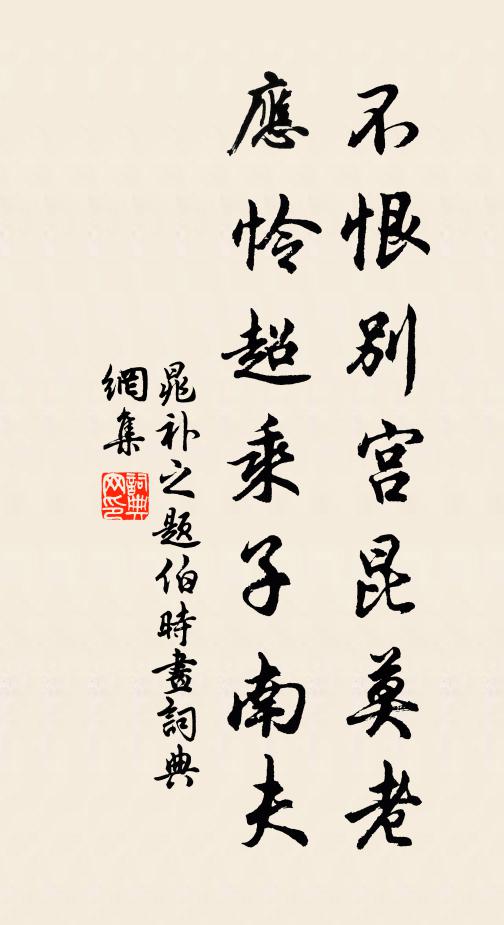 不恨别宫昆莫老
應怜超乘子南夫
晁补之题伯時畫詞典
網集
詞典网印